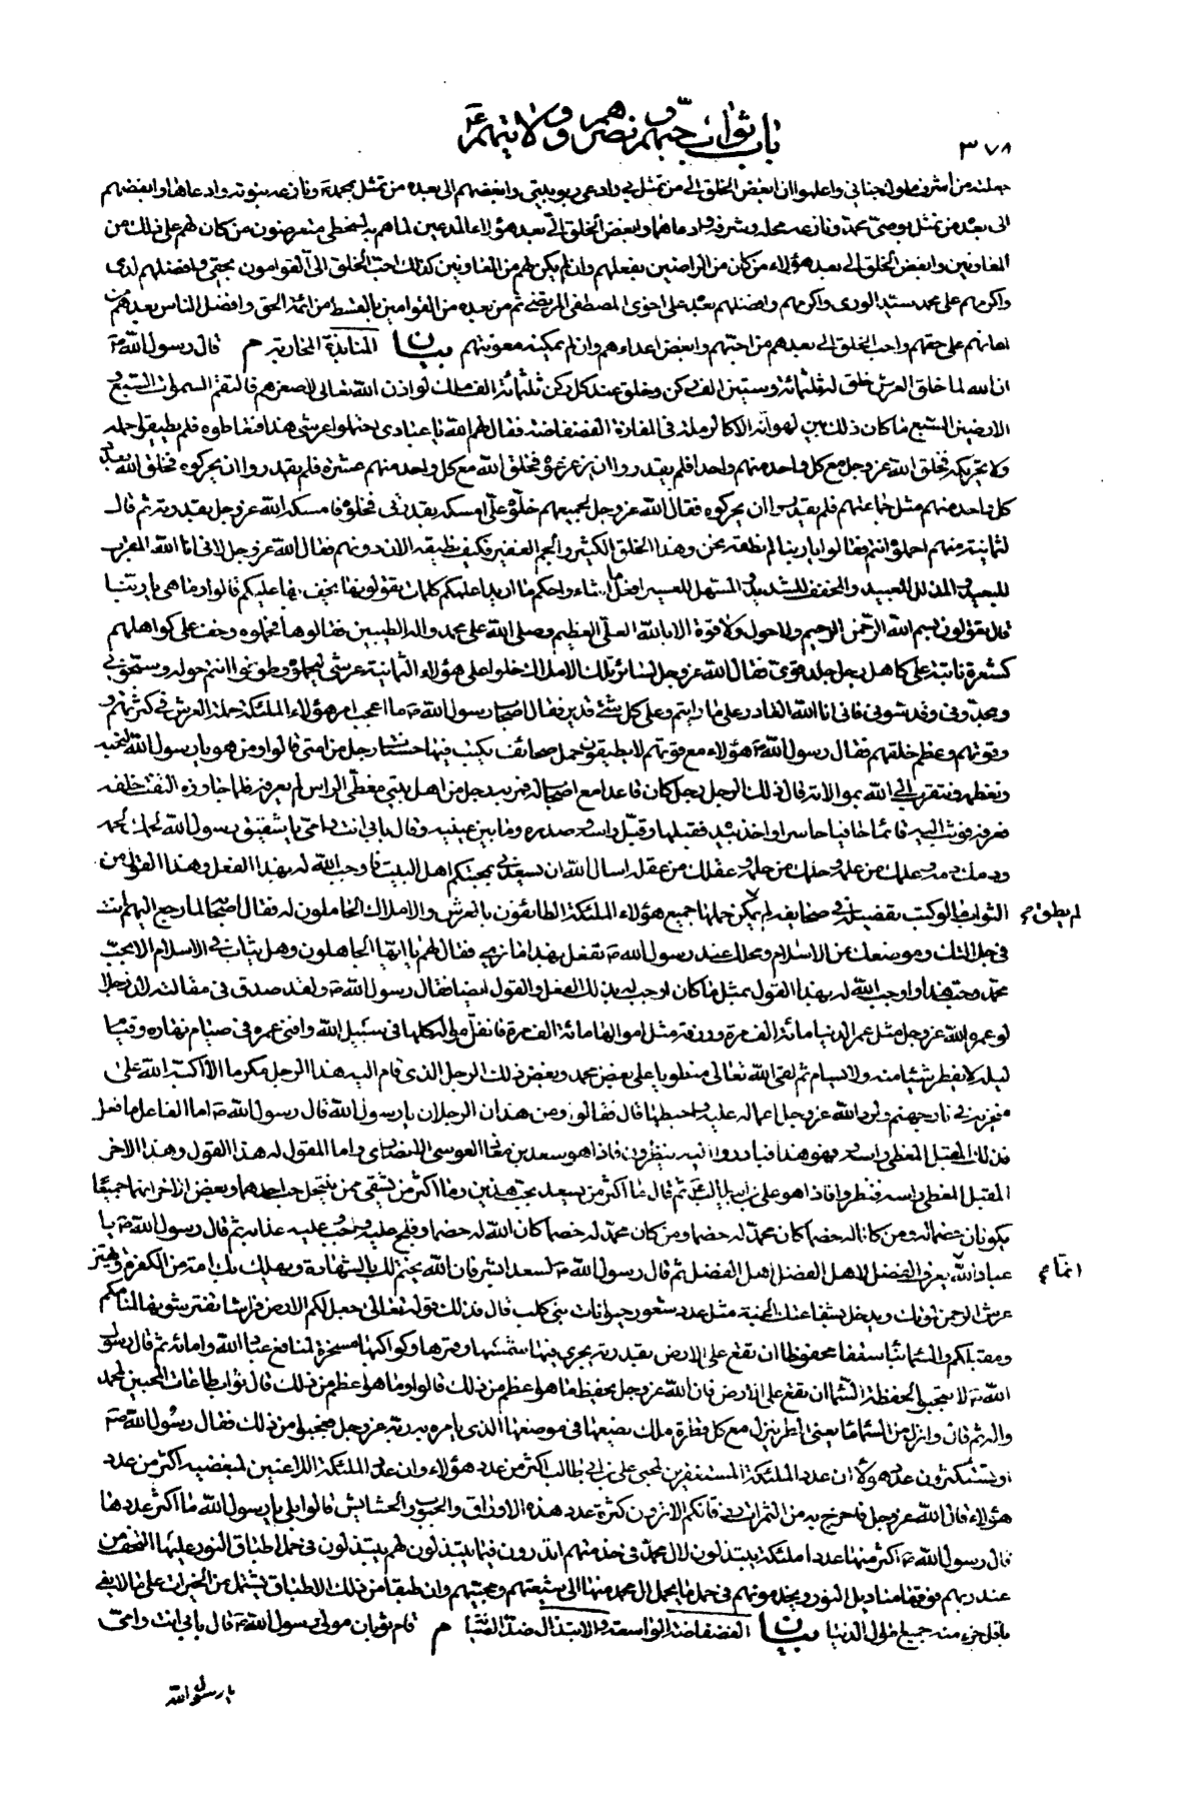 باب ثواب حبهم ونصرهم وولايتهم ع
٣٧٨
جعلته من أشرف ملوك جناني واعلموا ان ابغض الخلق الي من تمثل بي وادعى ربوبيتي وابغضهم الي بعده من تمثل بمحمد ونازعه بنوته وادعاها وابغضهم
الي بعده من تمثل بوصي محمد ونازعه محله وشرفه وادعاهما وابغض الخلق الي بعد هؤلاء المدعين لما هم به لسخطي متعرضون من كان لهم على ذلك من
المعاونين وابغض الخلق الي بعد هؤلاء من كان من الراضين بفعلهم وان لم يكن لهم من المعاونين كذلك احب الخلق الي القوامون بحقي وافضلهم لدي
واكرمهم علي محمد سيد الورى واكرمهم وافضلهم بعده علي اخوى المصطفى المرتضى ثم من بعده من القوامين بالقسط من ائمة الحق وافضل الناس بعدهم من
اعانهم على حقهم واحب الخلق الي بعدهم من احبهم وابغض اعداءهم وان لم يمكنه معونتهم بيان المنابذة المحاربة م قال رسول الله ص
ان الله لما خلق العرش خلق له ثلثمائة وستين الف ركن وخلق عند كل ركن ثلثمائة الف ملك لو اذن الله تعالى لاصغرهم فالتقم السموات السبع
الارضين السبع ما كان ذلك بين لهواته الا كالرملة في المفازة الفضفاضة فقال لهم الله يا عبادي احتملوا عرشي هذا فتعاطوه فلم يطيقوا حمله
ولا تحريكه فخلق الله عز وجل مع كل واحد منهم واحدا فلم يقدروا ان يزعزعوه فخلق الله مع كل واحد منهم عشرة فلم يقدروا ان يحركوه فخلق الله بعدد
كل واحد منهم مثل جماعتهم فلم يقدروا ان يحركوه فقال الله عز وجل لجميعهم خلوه علي امسكه بقدرتي فخلوه فامسكه الله عز وجل بقدرته ثم قال
لثمانية منهم احملوه انتم فقالوا يا ربنا لم نطقه نحن وهذا الخلق الكثير والجم الغفير فكيف نطيقه الان دونهم فقال الله عز وجل لاني انا الله المقرب
للبعيد والمذلل للعبيد والمخفف للشديد والمسهل للعسير افعل ما اشاء واحكم ما اريد اعلمكم كلمات تقولونها يخف بها عليكم قالوا وما هي يا ربنا
قال تقولون بسم الله الرحمن الرحيم ولا حول ولا قوة الا بالله العلي العظيم وصلى الله على محمد واله الطيبين فقالوها فحملوه وخف على كواهلهم
كشعرة نابتة على كاهل رجل جلد قوي فقال الله عز وجل لسائر تلك الاملاك خلوا على هؤلاء الثمانية عرشي ليحملوه وطوفوا انتم حوله وسبحوني
ومجدوني وقدسوني فاني انا الله القادر على ما رايتم وعلى كل شئ قدير فقال اصحاب رسول الله ص ما اعجب امر هؤلاء الملئكة حملة العرش في كثرتهم و
وقوتهم وعظم خلقهم فقال رسول الله ص هؤلاء مع قوتهم لا يطيقون حمل صحائف يكتب فيها حسنات رجل من امتي قالوا ومن هو يا رسول الله لنحبه
ونعظمه ونتقرب الى الله بموالاته قال ذلك الرجل رجل كان قاعدا مع اصحاب له فمر به رجل من اهل بيتي مغطى الراس لم يعرفه فلما جاوزه التفت خلفه
فعرفه فوثب اليه قائما حافيا حاسرا واخذ بيده فقبلها وقبل راسه وصدره وما بين عينيه وقال بابي انت وامي يا شقيق رسول الله لحمك لحمه
ودمك دمه وعلمك من علمه وحلمك من حلمه وعقلك من عقله اسال الله ان يسعدني بمحبتكم اهل البيت فاوجب الله له بهذا الفعل وهذا القول من
الثواب ما لو كتب تفصيله في صحايفه لم يمكن حملها جميع هؤلاء الملئكة الطائفون بالعرش والاملاك الحاملون له فقال اصحابه لما رجع اليهم انت
لم يطق م
في جلالتك وموضعك من الاسلام ومحلك عند رسول الله ص تفعل بهذا ما نرى فقال لهم يا ايها الجاهلون وهل يثاب في الاسلام الا بحب
محمد وحب هذا فاوجب الله له بهذا القول بمثل ما كان اوجب له بذلك الفعل والقول ايضا فقال رسول الله ص ولقد صدق في مقالته لان رجلا
لو عمره الله عز وجل مثل عمر الدنيا مائة الف مرة ورزقه مثل اموالها مائة الف مرة فانفق امواله كلها في سبيل الله وافنى عمره في صيام نهاره وقيام
ليله لا يفطر شيئا منه ولا يسام ثم لقي الله تعالى منطويا على بغض محمد وبغض ذلك الرجل الذي قام اليه هذا الرجل مكرما الا اكبه الله على
منخريه في نار جهنم ولرد الله عز وجل اعماله عليه واحبطها قال فقالوا ومن هذان الرجلان يا رسول الله قال رسول الله ص اما الفاعل ما فعل
فذلك المقبل المغطى راسه فهو هذا فتبادروا اليه ينظرون فاذا هو سعد بن معاذ الاوسى الانصاري واما المقول له هذا القول وهذا الاخر
المقبل المغطى راسه فنظروا فاذا هو علي بن ابي طالب ع ثم قال ما اكثر من يسعد بحب هذين وما اكثر من يشقى ممن ينتحل حب احدهما وبغض الاخر انهما جميعا
يكونان خصماه ومن كانا له خصما كان محمد له خصما ومن كان محمد له خصما كان الله له خصما وفلج عليه واوجب عليه عذابه ثم قال رسول الله ص يا
عباد الله يعرف الفضل لاهل الفضل اهل الفضل ثم قال رسول الله ص لسعد ابشر فان الله يختم لك بالشهادة ويهلك بك امة من الكفرة ويهتز
انما م
عرش الرحمن لموتك ويدخل بشفاعتك الجنة مثل عدد شعور حيوانات بني كلب قال فذلك قوله تعالى جعل لكم الارض فراشا تفترشونها لمنامكم
ومقيلكم والسماء بناء سقفا محفوظا ان تقع على الارض بقدرته يجري فيها شمسها وقمرها وكواكبها مسخرة لمنافع عباد الله وامائه ثم قال رسول
الله ص لا تعجبوا لحفظه السماء ان تقع على الارض فان الله عز وجل يحفظ ما هو اعظم من ذلك قالوا وما هو اعظم من ذلك قال ثواب طاعات المحبين لمحمد
واله ثم قال وانزل من السماء ماء يعني المطر ينزل مع كل قطرة ملك يضعها في موضعها الذي يامره به ربه عز وجل فعجبوا من ذلك فقال رسول الله ص
اوتستكثرون عدد هؤلاء ان عدد الملئكة المستغفرين لمحبي علي بن ابي طالب اكثر من عدد هؤلاء وان عدد الملئكة اللاعنين لمبغضيه اكثر من عدد
هؤلاء قال الله عز وجل فاخرج به من الثمرات رزقا لكم الا ترون كثرة عدد هذه الاوراق والحبوب والحشايش قالوا بلى يا رسول الله ما اكثر عددها
قال رسول الله ص اكثر منها عددا ملئكة يبتذلون لال محمد في خدمتهم اتدرون فيما يبتذلون لهم يبتذلون في حمل اطباق النور عليها التحف من
عند ربهم فوقها مناديل النور ويخدمونهم في حمل ما يحمل ال محمد منها الى شيعتهم ومحبيهم وان طبقا من ذلك الاطباق يشتمل من الخيرات على ما لا يفي
باقل جزء منه جميع اموال الدنيا بيان الفضفاضة الواسعة والابتذال ضد الصيانة م قام ثوبان مولى رسول الله ص قال بابي انت وامي
يا رسول الله